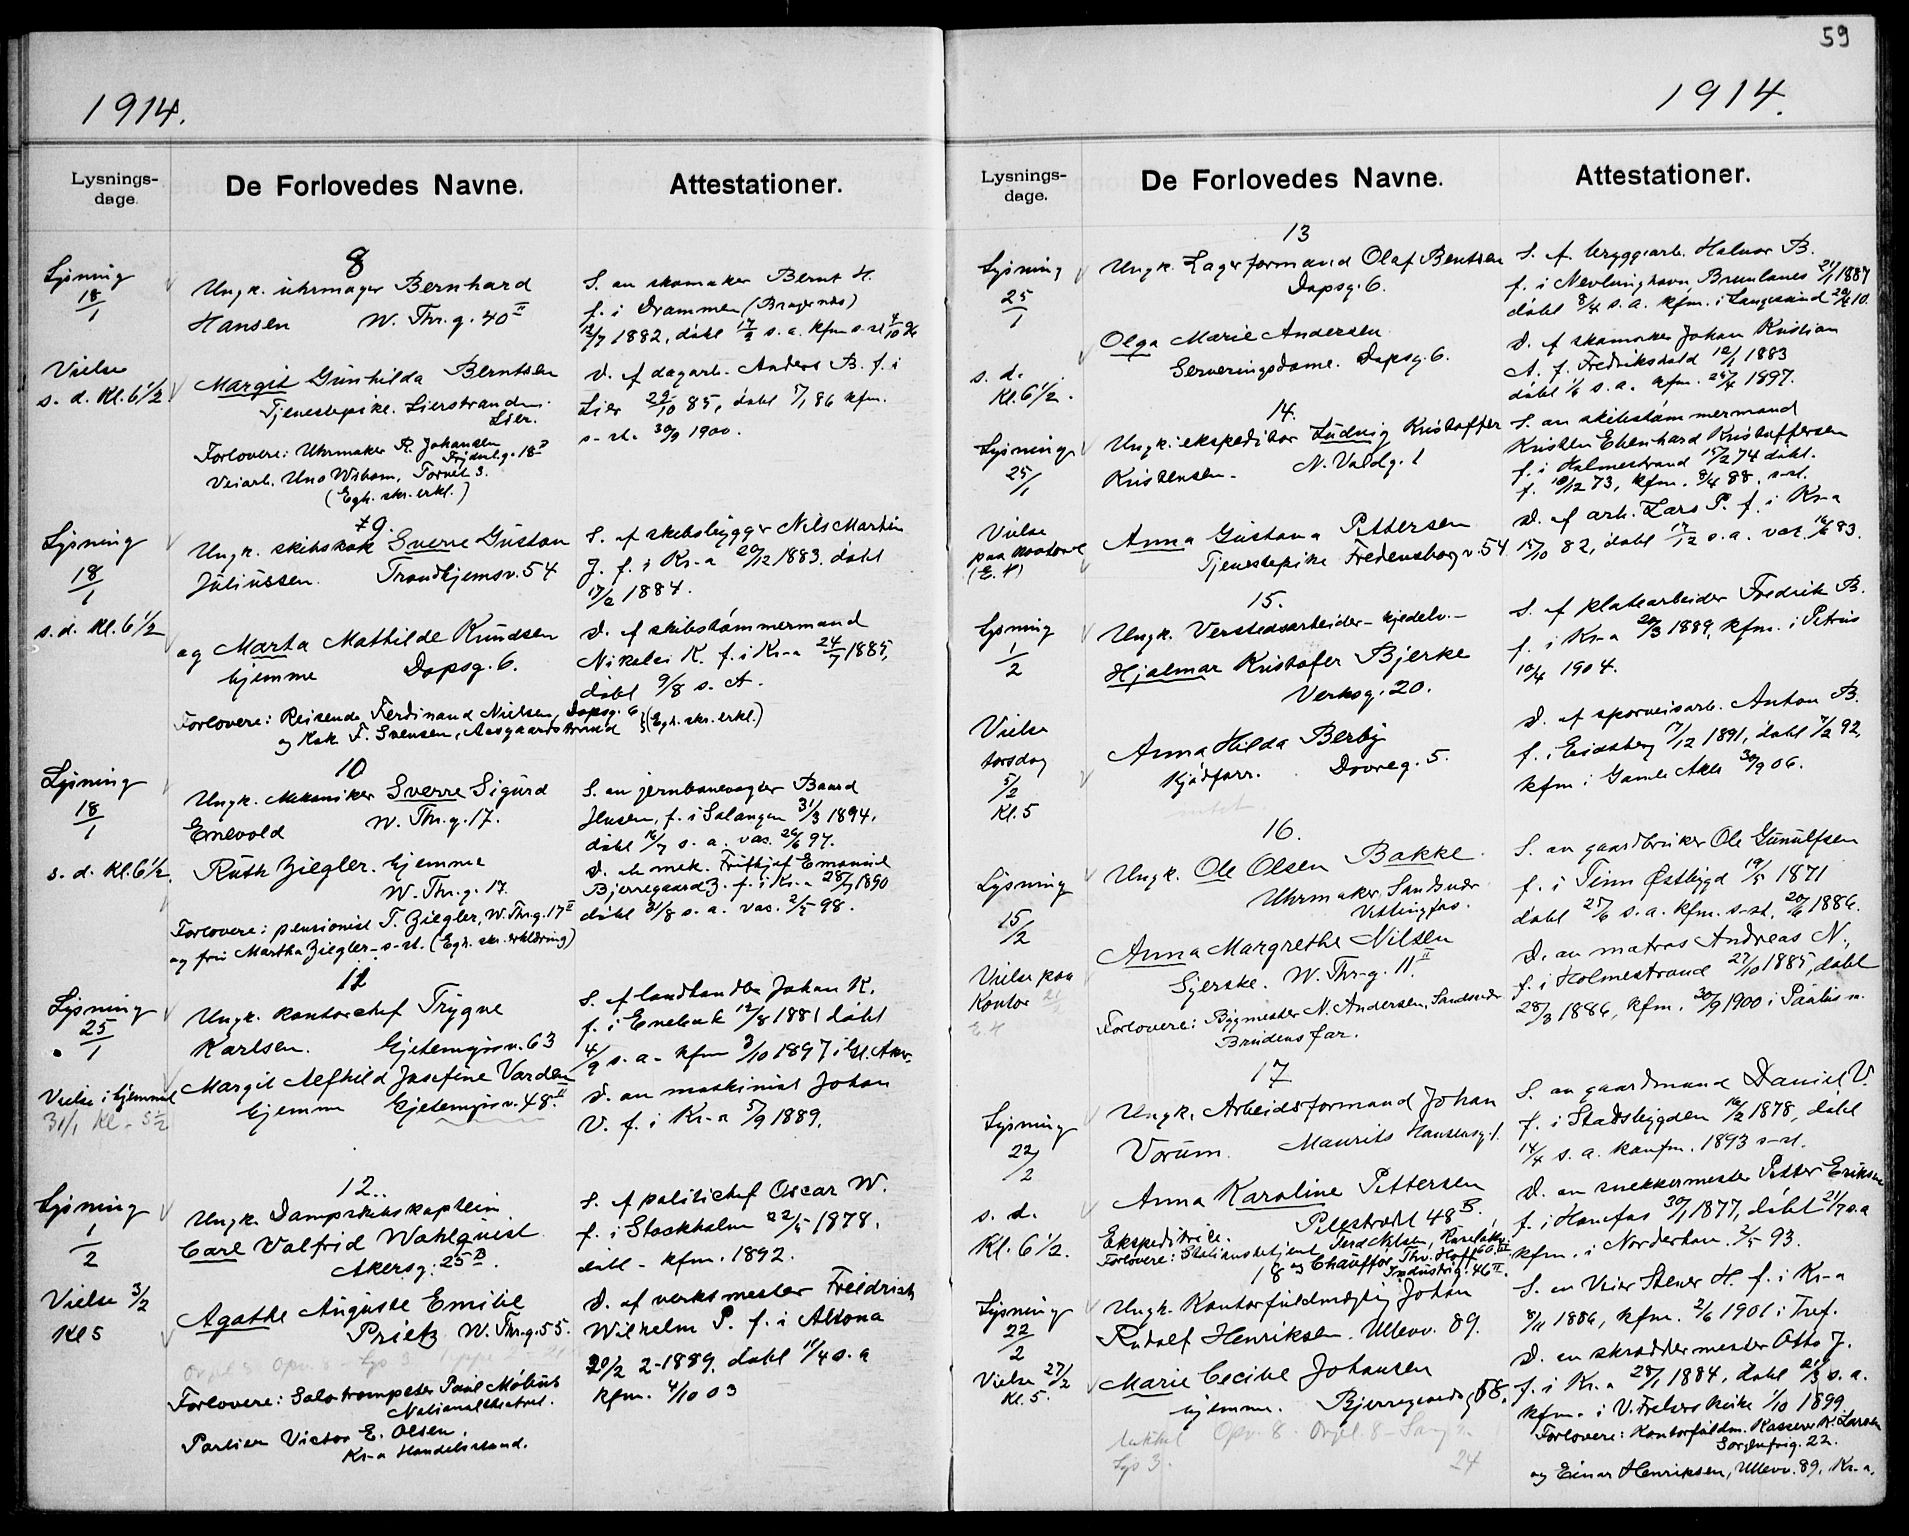 59
1914.
1914.
Lysnings-
dage.
De Forlovedes Navne.
Attestationer.
8
Lysning
18/1
Vielse
s. d. Kl. 6 1/2
Ungk. uhrmager Bernhard
Hansen W. Thr. g. 40 II
Margit Gunhilda Berntsen
Tjenestepike. Lierstranden.
Lier.
Forlovere: Uhrmaker R. Johansen
18 II
Veiarb. Uno Wibom, Torvet 3.
(Egh. skr. erkl.)
S. av skomaker Bernt H.
f. i Drammen (Bragernæs)
12/7 1882, døbt 17/9 s. a. kfm. s-st
D. af dagarb. Anders B. f. i
Lier 29/10 85, døbt 7/1 86 kfm.
s-st. 30/9 1900.
9.
Lysning
18/1
s. d. Kl. 6 1/2
Ungk. skibskok Sverre Gustav
Juliussen. Trondhjemsv. 54
og Marta Mathilde Knudsen
hjemme Dopsg. 6.
Forlovere: Reisende Ferdinand Nielsen, Dopsg. 6
og Kok F. Svensen, Aasgaardstrand } (Egh. skr. erkl.)
S. af skibsbygger Nils Martin
J. f. i Kr-a 20/12 1883. døbt
17/2 1884.
D. af skibstømmermand
Nikolai K. f. i Kr-a 24/7 1885,
døbt 9/8 s. A.
10
Lysning
18/1
s. d. Kl. 6 1/2
Ungk. Mekaniker Sverre Sigurd
Enevold W. Thr. g. 17.
Ruth Ziegler. hjemme
W. Thr. g. 17.
Forlovere: pensionist T. Ziegler, W. Thr. g. 17 II
og fru Martha Ziegler - s-st. (Egh. skr. erklæring)
S. av jernbanevogter Baard
Jensen, f. i Salangen 31/3 1894.
døbt 16/7 s. a. vac. 26/6 97.
D. av mek. Frithjof Emanuel
Bjerregaard Z. f. i Kr-a 28/7 1890
døbt 31/8 s. a. vac. 2/5 98.
11
Lysning
25/1
Vielse i hjemmet
31/1 Kl - 5 1/2
Ungk. kontorchef Trygve
Karlsen. Gjetemyrsv. 63
Margit Alfhild Josefine Varden
hjemme Gjetemyrsv. 48 II
S. af landhandler Johan K.
f. i Enebak 12/8 1881 døbt
4/9 s. a - kfm 3/10 1897 i Gl. Aker.
D. av maskinist Johan
V. f. i Kr-a 5/9 1889.
12.
Lysning
1/2
Vielse 3/2
Kl 5
Ungk. Dampskibskaptein
Carl Valfrid Wahlquist
Akersg. 25 B.
Agathe Auguste Emilie
Prietz W. Thr. g. 55.
Forlovere: Solotrompeter Paul Möbius
Nationaltheatret.
Portier Victor E. Olsen.
Kr-a Handelsstand.
S. af politichef Oscar W.
f. i Stockholm 22/5 1878.
døbt - kfm. 1892.
D. af verksmester Freidrich
Wilhelm P. f. i Altona
20/2 2-1889. døbt 11/4 s. a
kfm. 4/10 03
Lysnings-
dage.
De Forlovedes Navne.
Attestationer.
13
Lysning
25/1
s. d.
Kl. 6 1/2.
Ungk. Lagerformand Olaf Bentsen
Dopsg. 6.
Olga Marie Andersen
Serveringsdame. Dopsg. 6.
S. af bryggearb. Halvor B.
f. i Nevlunghavn, Brunlanes 21/1 1887
døbt 8/4 s. a. kfm. i Langesund
D. af skomaker Johan Kristian
A. f. Fredrikshald 12/1 1883
døbt 1/6 s. a. kfm. 25/4 1897.
14.
Lysning
25/1
Vielse
paa kontoret
Ungk. ekspeditør Ludvig Kristoffer
Kristensen. N. Voldg. 1
Anna Gustava Pettersen
Tjenestepike Fredensborgv. 54
S. av skibstømmermand
Kristen Eberhard Kristoffersen
f. i Holmestrand 15/2 74 døbt.
f. 18/12 73, kfm. 8/4 88. s-st.
D. af arb. Lars P. f. i Kr-a
15/10 82, døbt 17/12 s. a. vac. 16/6 83.
15.
Lysning
1/2
Vielse
torsdag
5/2
Kl. 5
Ungk. Verstedsarbeider - kjedelv. -
Hjalmar Kristofer Bjerke
Verksg. 20.
Anna Hilda Berby
Kjødforr. Dovreg. 5.
S. af platearbeider Fredrik B.
f. i Kr-a 20/3 1889, kfm. i Petrus
10/4 1904.
D. af sporveisarb. Anton B.
f. i Eidsberg 17/12 1891, døbt 7/2 92,
kfm i Gamle Aker 30/9 06.
16.
Lysning
15/2
Vielse paa
Kontor
Ungk. Ole Olsen Bakke
Uhrmaker, Sandsvær
Vittingfos.
Anna Margrethe Nilsen
Syerske. W. Thr-g. 11 II
Forlovere: Bygmester N. Andersen, Sandsvær
Brudens far.
S. av gaardbruker Ole Gunulfsen
f. i Tinn Østbygd 19/5 1871
døbt 25/6 s. a. kfm. s-st, 20/6 1886.
D. av matros Andreas N.,
f. i Holmestrand 27/10 1885, døbt
28/3 1886, kfm. 30/9 1900 i Paulus m.
17
Lysning
22/2
s. d.
Kl. 6 1/2.
Ungk. Arbeidsformand Johan
Vorum. Maurits Hansensg. 1.
Anna Karoline Pettersen
Ekspeditrice. Pilestrædet 48 B.
Forlovere: Stationsbetjent
og Chauffør Thv. Hoff
Industrig. 46 II.
S. av gaardmand Daniel V.
f. i Stadsbygden 16/2 1878, døbt
14/4 s. a. konfm. 1893 s-st.
D. av snekkermester Petter Eriksen
f. i Hønefos 30/1 1877, døbt 21/7 s. a
kfm. i Norderhov. 2/5 93.
18
Lysning
22/2
Vielse 27/2
Kl. 5.
Ungk. Kontorfuldmægtig Johan
Rudolf Henriksen. Ullevv. 89.
Marie Cecilie Johansen
hjemme. Bjerregaardsg. 58.
Opv. 8. Orgel. 8 - Sang
Lys 3.
24
S. av Veier Stener H. f. i Kr-a
8/11 1886, kfm. 2/6 1901 i Tref.
D. av skræddermester Otto J.
f. i Kr-a 28/1 1884, døbt 21/3 s. a.
kfm. i V. Frelsers kirke 1/10 1899
Forlovere: Kontorfuldm. Kasserer K. Larsen
Sorgenfrig. 22.
og Einar Henriksen, Ullevv. 89, Kr-a.